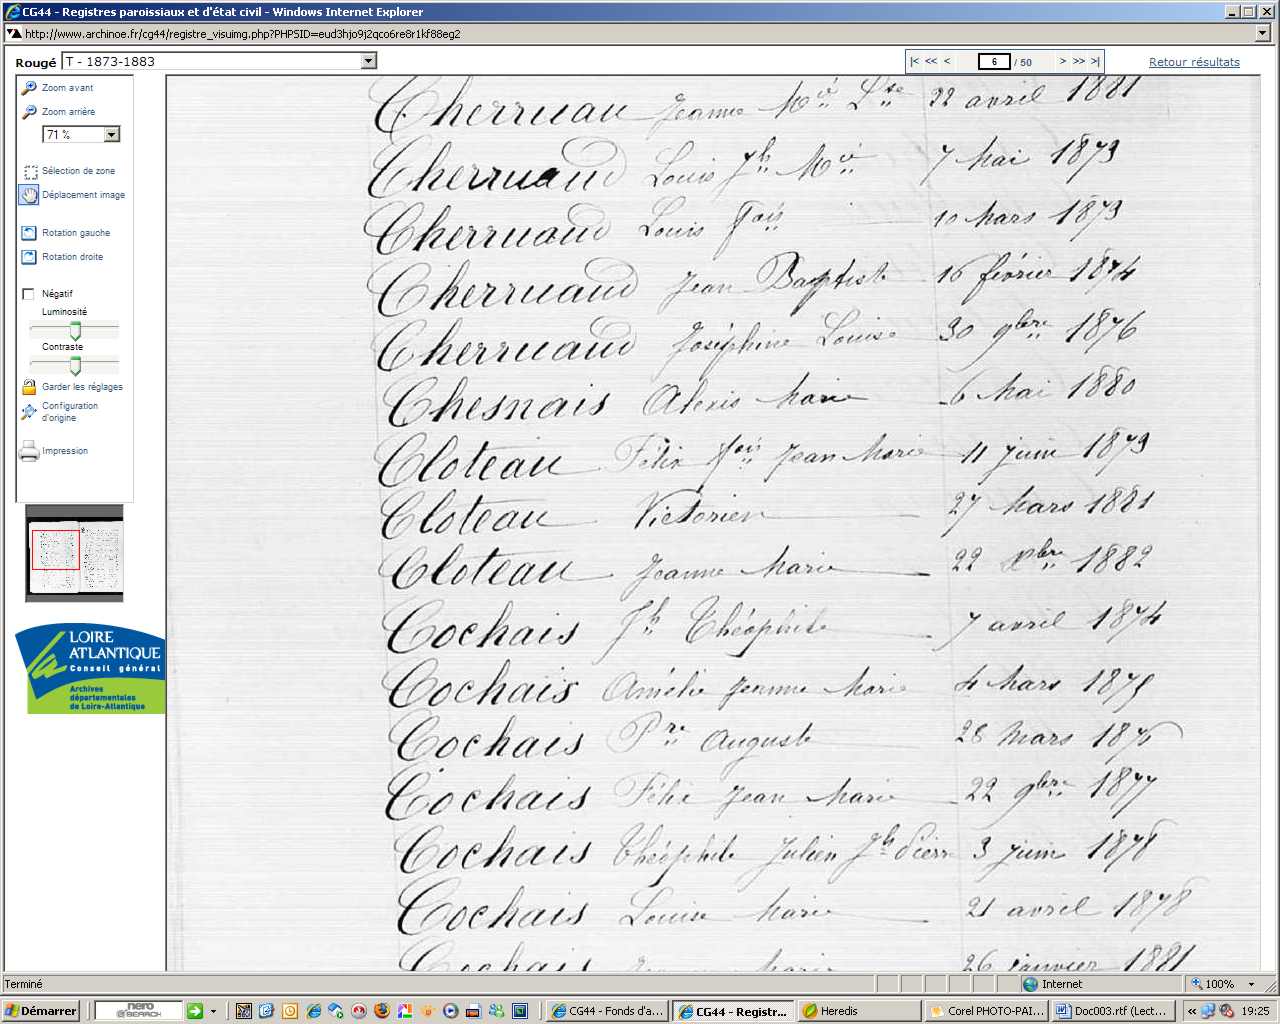 CG44 - Registres paroissiaux et d'état civil - Windows Internet Explorer
http://www.archinoe.fr/cg44/registre_visuimg.php?PHPSID=eud3hjo9j2qco6re8r1kf88eg2
Rougé T - 1873-1883 |< << < 6 / 50 > >> >| Retour résultats
Zoom avant
Zoom arrière
71 %
Sélection de zone
Déplacement image
Rotation gauche
Rotation droite
Négatif
Luminosité
Contraste
Garder les réglages
Configuration
d'origine
Impression
LOIRE
ATLANTIQUE
Conseil général
Archives
départementales
de Loire-Atlantique
Cherruau Jeanne Mie Lse 22 avril 1881
Cherruaud Louis Jh Mie 7 Mai 1873
Cherruaud Louis Fois 10 Mars 1873
Cherruaud Jean Baptiste 16 février 1874
Cherruaud Joséphine Louise 30 9bre 1876
Chesnais Alexis Marie 6 Mai 1880
Cloteau Félix Fois Jean Marie 11 juin 1873
Cloteau Victorien 27 Mars 1881
Cloteau Jeanne Marie 22 Xbre 1882
Cochais Jh Théophile 7 avril 1874
Cochais Amélie Jeanne Marie 4 Mars 1875
Cochais Pre Auguste 28 Mars 1876
Cochais Félix Jean Marie 22 9bre 1877
Cochais Théophile Julien Jh Pierre 3 juin 1878
Cochais Louise Marie 21 avril 1878
Cochais Marie 26 janvier 1881
Terminé Internet 100%
Démarrer nero SEARCH CG44 - Fonds d'a... CG44 - Registr... Heredis Corel PHOTO-PAI... Doc003.rtf (Lect... 19:25